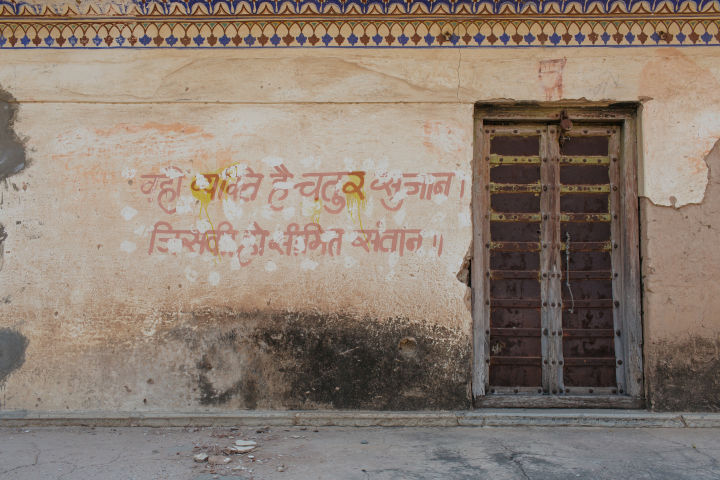 वही व्यक्ति है चतुर सुजान।
जिसकी हो सीमित संतान।।